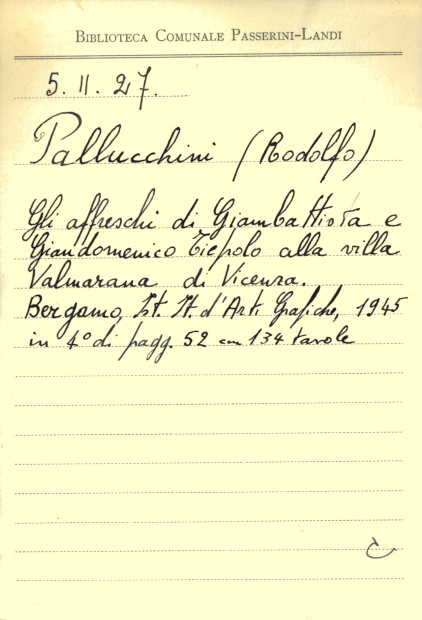 BIBLIOTECA COMUNALE PASSERINI-LANDI
5. II. 27.
Pallucchini (Rodolfo)
Gli affreschi di Giambattista e
Giandomenico Tiepolo alla villa
Valmarana di Vicenza.
Bergamo, Ist. It. d'Arti Grafiche, 1945
in 4º di pagg. 52 con 134 tavole
C